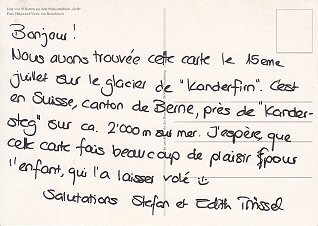 Bonjour!
Nous avons trouvée cette carte le 15eme
juillet sur le glacier de "Kanderfirn". C'est
en Suisse, canton de Berne, près de "Kander-
steg" sur ca. 2'000 m sur mer. J'espère, que
cette carte fais beaucoup de plaisir pour
l'enfant, qui l'a laisser volé
Salutations Stefan et Edith